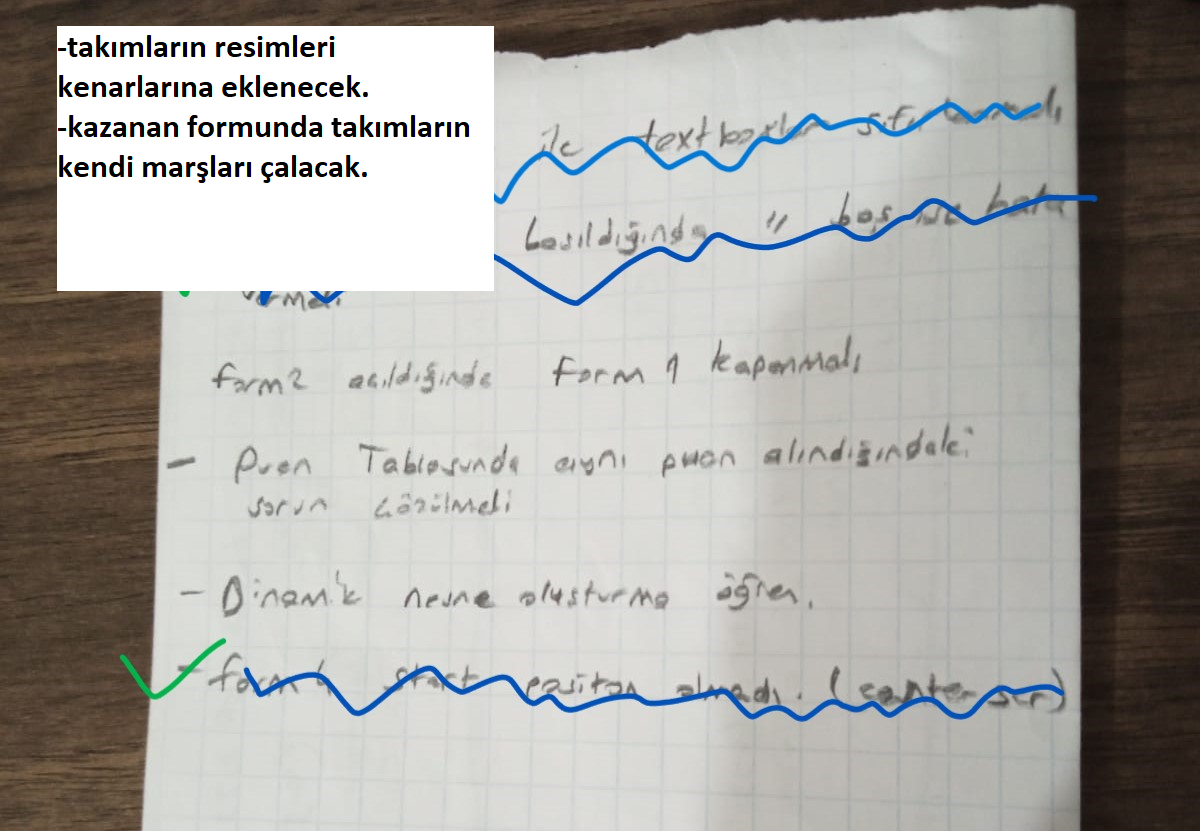 -takımların resimleri
kenarlarına eklenecek.
-kazanan formunda takımların
kendi marşları çalacak.
ile textboxlar
basıldığında " boş ise hata
form2 açıldığında Form 1 kapanmalı
- Puan Tablosunda aynı puan alındığındaki
sorun çözülmeli
- Dinamik nesne oluşturma öğren.
- form 4 start position olmadı. (center scr)